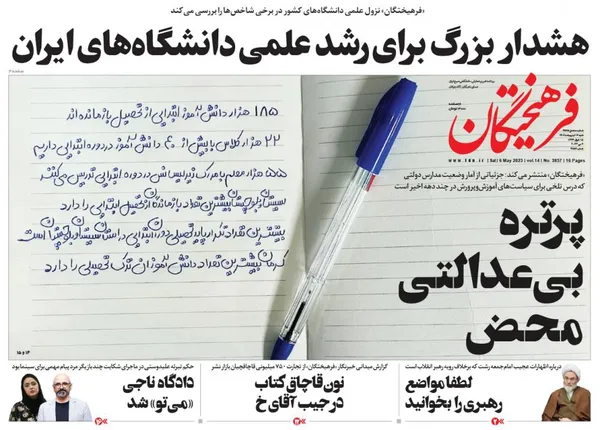 «فرهیختگان» نزول علمی دانشگاه‌های کشور در برخی شاخص‌ها را بررسی می‌کند
هشدار بزرگ برای رشد علمی دانشگاه‌های ایران
فرهیختگان
www.fdn.ir | Sat | 6 May 2023 | vol.14 | No. 3837 | 16 Pages
«فرهیختگان» منتشر می‌کند: جزئیاتی از آمار وضعیت مدارس دولتی
که درس تلخی برای سیاست‌های آموزش‌وپرورش در چند دهه اخیر است
پرتره
بی‌عدالتی
محض
۱۸۵ هزار دانش‌آموز ابتدایی از تحصیل بازمانده‌اند
۲۲ هزار کلاس با بیش از ۴۰ دانش‌آموز در دوره ابتدایی داریم
۵۵ هزار معلم با مدرک زیر لیسانس در دوره ابتدایی تدریس می‌کنند
سیستان و بلوچستان بیشترین تعداد بازمانده از تحصیل ابتدایی را دارد
بیشترین تعداد تکرار پایه تحصیلی دوره ابتدایی در استان سیستان و بلوچستان است
کرمان بیشترین تعداد دانش‌آموزان ترک تحصیلی را دارد
۱۴ و ۱۵
درباره اظهارات عجیب امام جمعه رشت که برخلاف رویه رهبر انقلاب است
لطفا مواضع
رهبری را بخوانید
گزارش میدانی خبرنگار «فرهیختگان» از تجارت ۷۵۰ میلیونی قاچاقچیان بازار نشر
نون قاچاق کتاب
در جیب آقای خ
حکم تبرئه علیدوستی در ماجرای شکایت چند بازیگر مرد پیام مهمی برای سینما بود
دادگاه ناجی
«می‌تو» شد